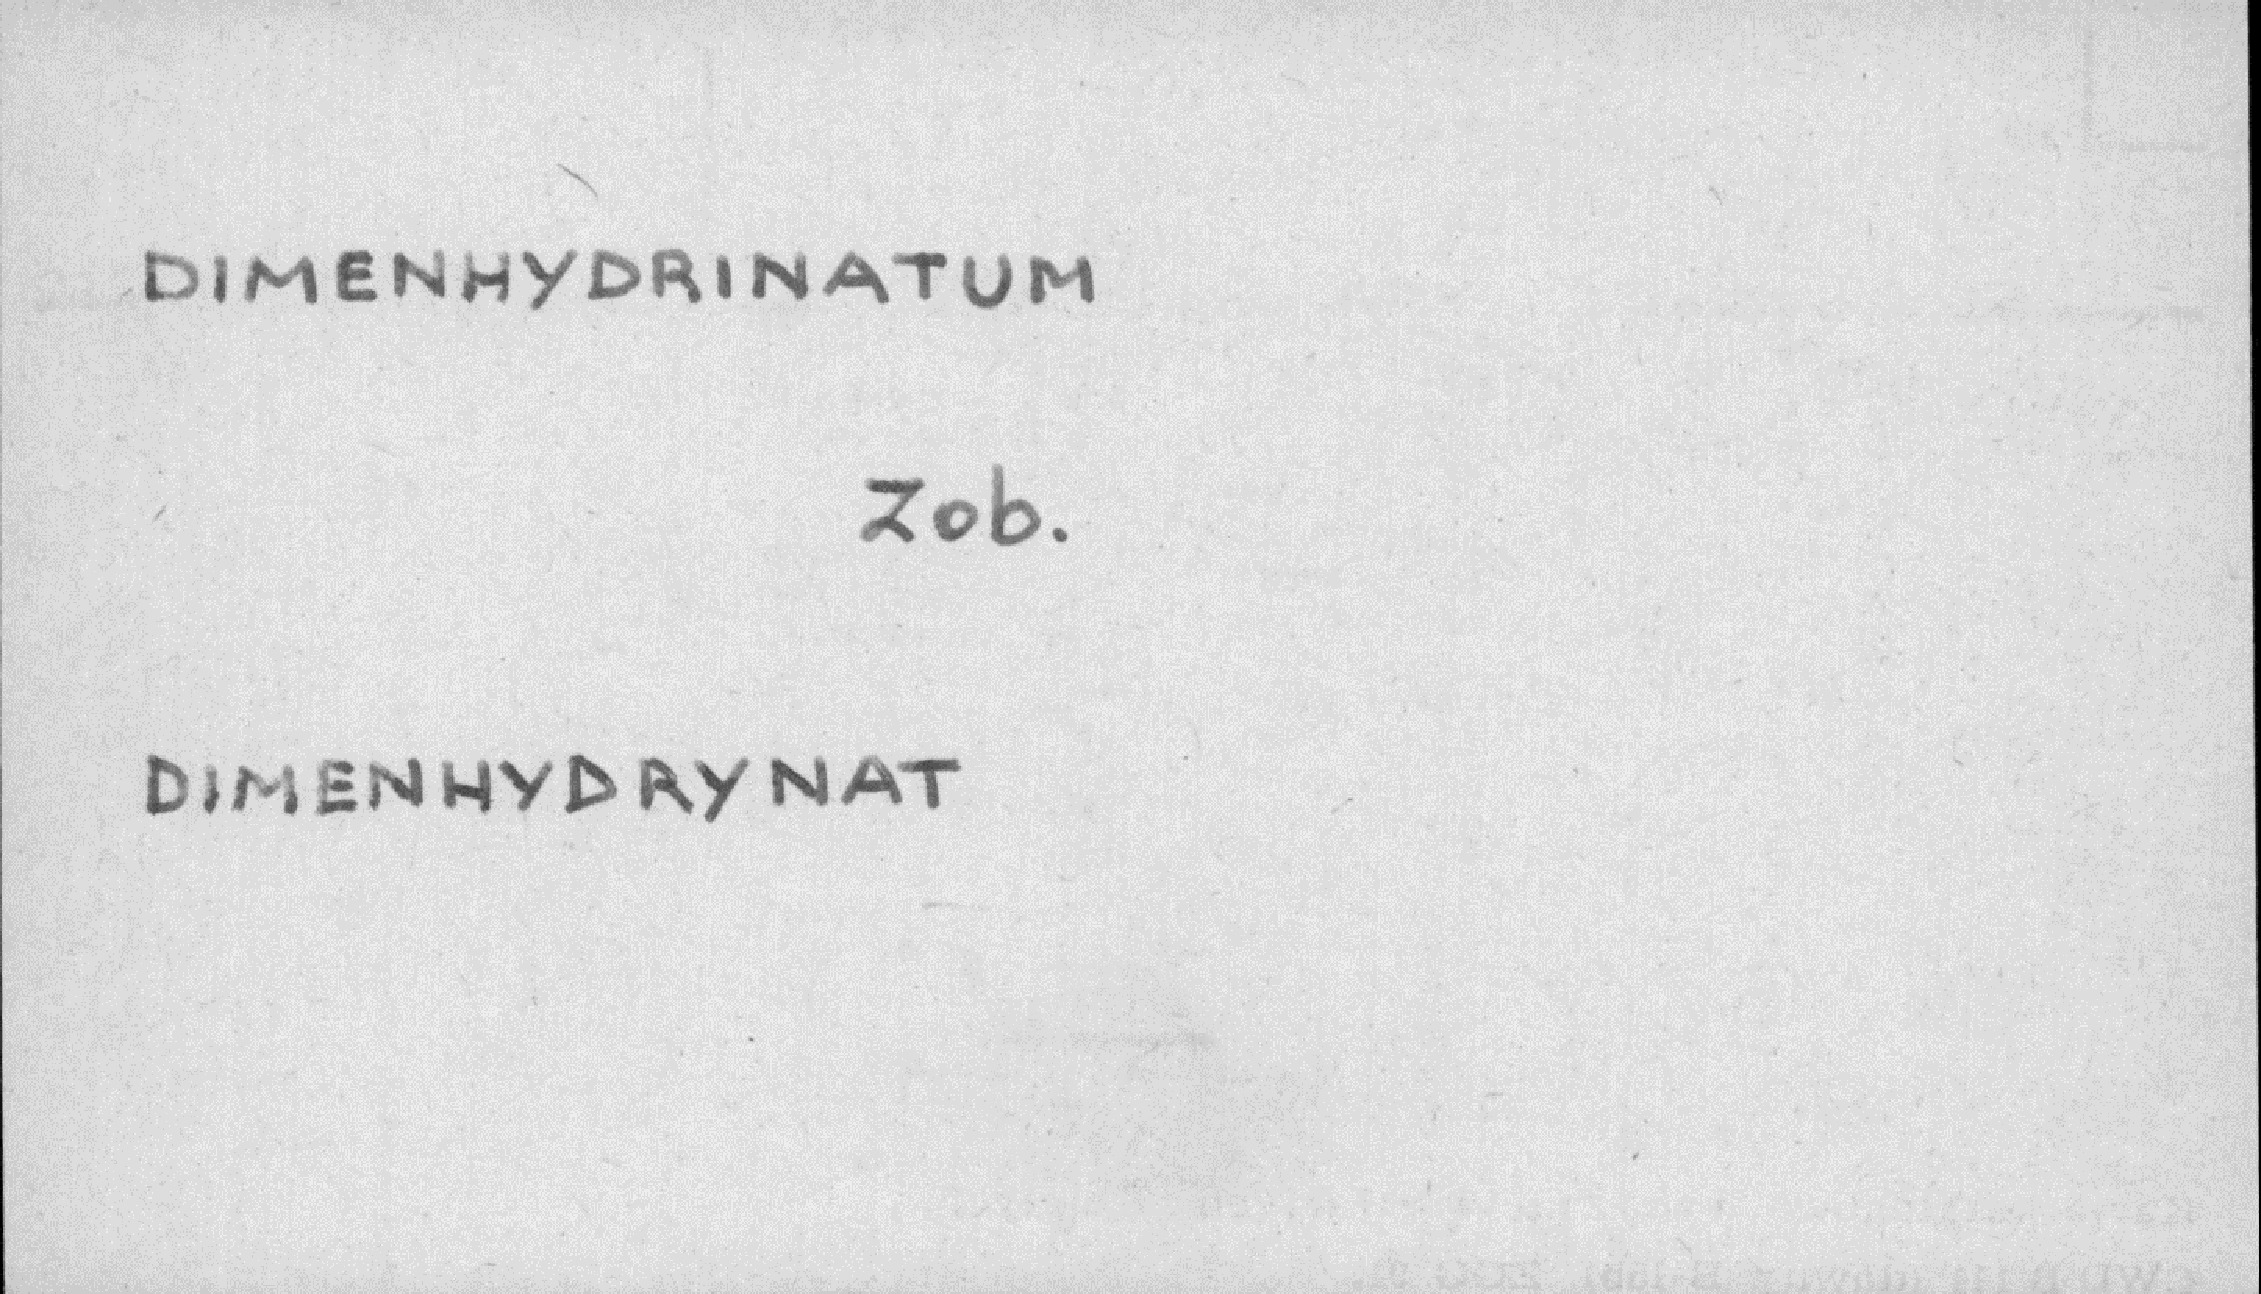 DIMENHYDRINATUM
Zob.
DIMENHYDRYNAT